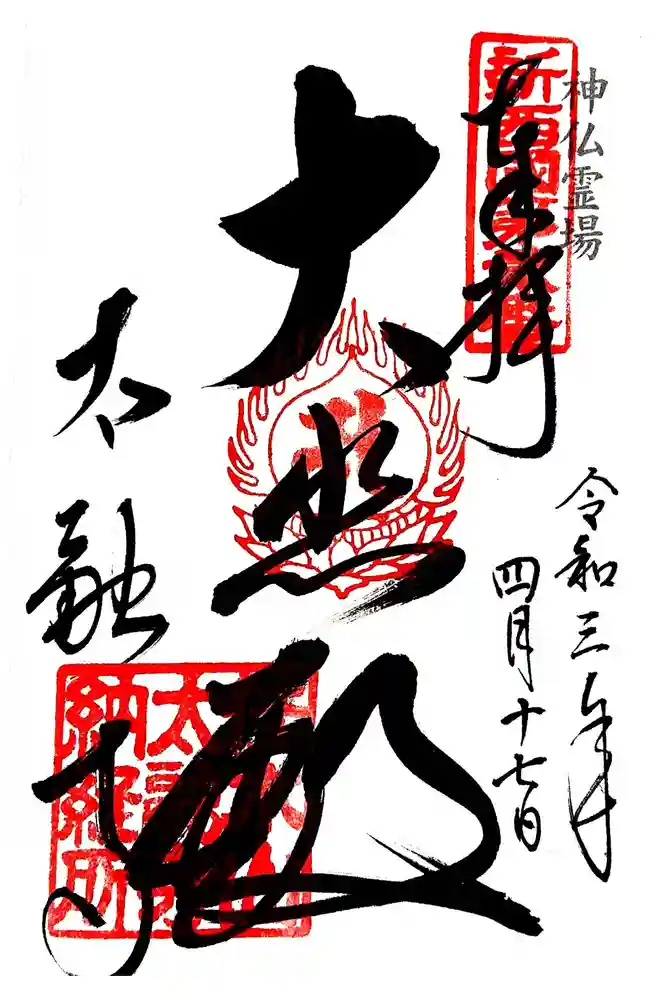 神仏霊場
新西国
奉拝
令和三年
四月十七日
大悲殿
太融寺
佳木山
太融寺
納経所